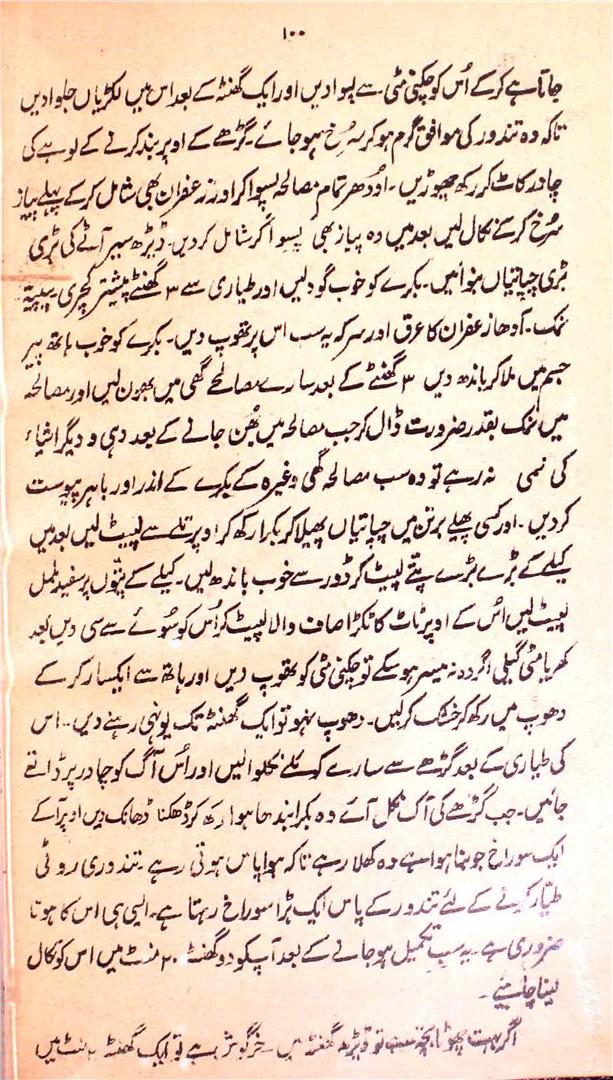 ۱۰۰
جاتا ہے کرکے اُس کو چکنی مٹی سے لپوا دیں اور ایک گھنٹہ کے بعد اس میں لکڑیاں جلوا دیں
تاکہ وہ تندور کی موافق گرم ہو کر سرخ ہو جائے۔ گڑھے کے اوپر بند کرنے کے لوہے کی
چادر کاٹ کر رکھ چھوڑیں۔ اودھر تمام مصالحہ پسوا کر اور زعفران بھی شامل کرکے پہلے پیاز
سُرخ کرکے نکال لیں بعد میں وہ پیاز بھی پسوا کر شامل کردیں۔ ڈیڑھ سیر آٹے کی بڑی
بڑی چپاتیاں بنوائیں۔ بکرے کو خوب گود لیں اور طیاری سے ۳ گھنٹے پیشتر کچری۔ پپیتہ
نمک۔ آدھا زعفران کا عرق اور سرکہ یہ سب اس پر تھوپ دیں۔ بکرے کو خوب ہاتھ پیر
جسم میں ملا کر باندھ دیں ۳ گھنٹے کے بعد سارے مصالحے گھی میں بھون لیں اور مصالحہ
میں نمک بقدر ضرورت ڈال کر جب مصالحہ میں بھُن جانے کے بعد دہی و دیگر اشیاء
کی نمی نہ رہے تو وہ سب مصالحہ گھی وغیرہ کے بکرے کے اندر اور باہر پیوست
کر دیں۔ اور کسی پھیلے برتن میں چپاتیاں پھیلا کر بکرا رکھ کر اوپر تلے سے لپیٹ لیں بعد میں
کیلے کے بڑے بڑے پتے لپیٹ کر ڈور سے خوب باندھ لیں۔ کیلے کے پتوں پر سفید ململ
لپیٹ لیں اُس کے اوپر ٹاٹ کا ٹکڑا صاف والا لپیٹ کر اُس کو سُوئے سے سی دیں بعد
کھریا مٹی گیلی اگر وہ نہ میسر ہو سکے تو چکنی مٹی کو تھوپ دیں اور ہاتھ سے ایکسار کر کے
دھوپ میں رکھ کر خشک کر لیں۔ دھوپ نہو تو ایک گھنٹہ تک یونہی رہنے دیں۔ اس
کی طیاری کے بعد گڑھے سے سارے کوئلے نکلوا لیں اور اُس آگ کو چادر پر ڈالتے
جائیں۔ جب گڑھے کی آگ نکل آئے وہ بکرا بندھا ہوا رکھ کر ڈھکنا ڈھانک دیں اوپر آگے
ایک سوراخ جو بنا ہوا ہے وہ کھلا رہے تاکہ ہوا پاس ہوتی رہے۔ تندوری روٹی
طیار کرنے کے لئے تندور کے پاس ایک بڑا سوراخ رہتا ہے۔ ایسی ہی اس کا ہونا
ضروری ہے۔ یہ سب تکمیل ہو جانے کے بعد آپکو دو گھنٹہ ۲۰ منٹ میں اس کو نکال
لینا چاہئیے۔
اگر بہت چھوٹا بچہ ہے تو ڈیڑھ گھنٹہ میں۔ خرگوش ہے تو ایک گھنٹہ منٹ میں